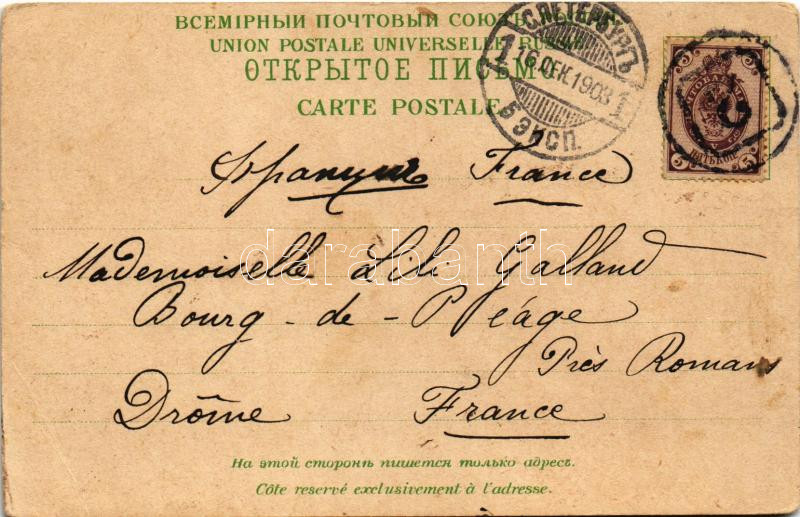 ВСЕМІРНЫЙ ПОЧТОВЫЙ СОЮЗЪ
UNION POSTALE UNIVERSELLE RUSSIE
ОТКРЫТОЕ ПИСЬМО
CARTE POSTALE
С.ПЕТЕРБУРГЪ
1 16.ДЕК.1903 1
5 ЭКСП.
5 5
5 5
Францию France
Mademoiselle Galland
Bourg-de-Péage
Près Romans
Drôme France
darabanth
На этой сторонѣ пишется только адресъ.
Côte reservé exclusivement à l'adresse.